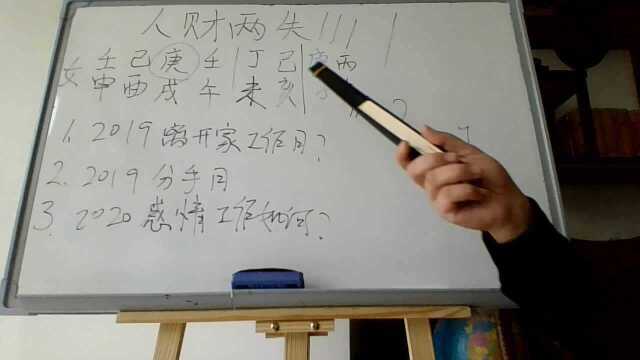 人财两失!!!
女 壬 己 庚 壬 丁 己 庚 丙
申 酉 戌 午 未 亥
1. 2019 离开家工作月?
2. 2019 分手月
3. 2020 感情工作如何?